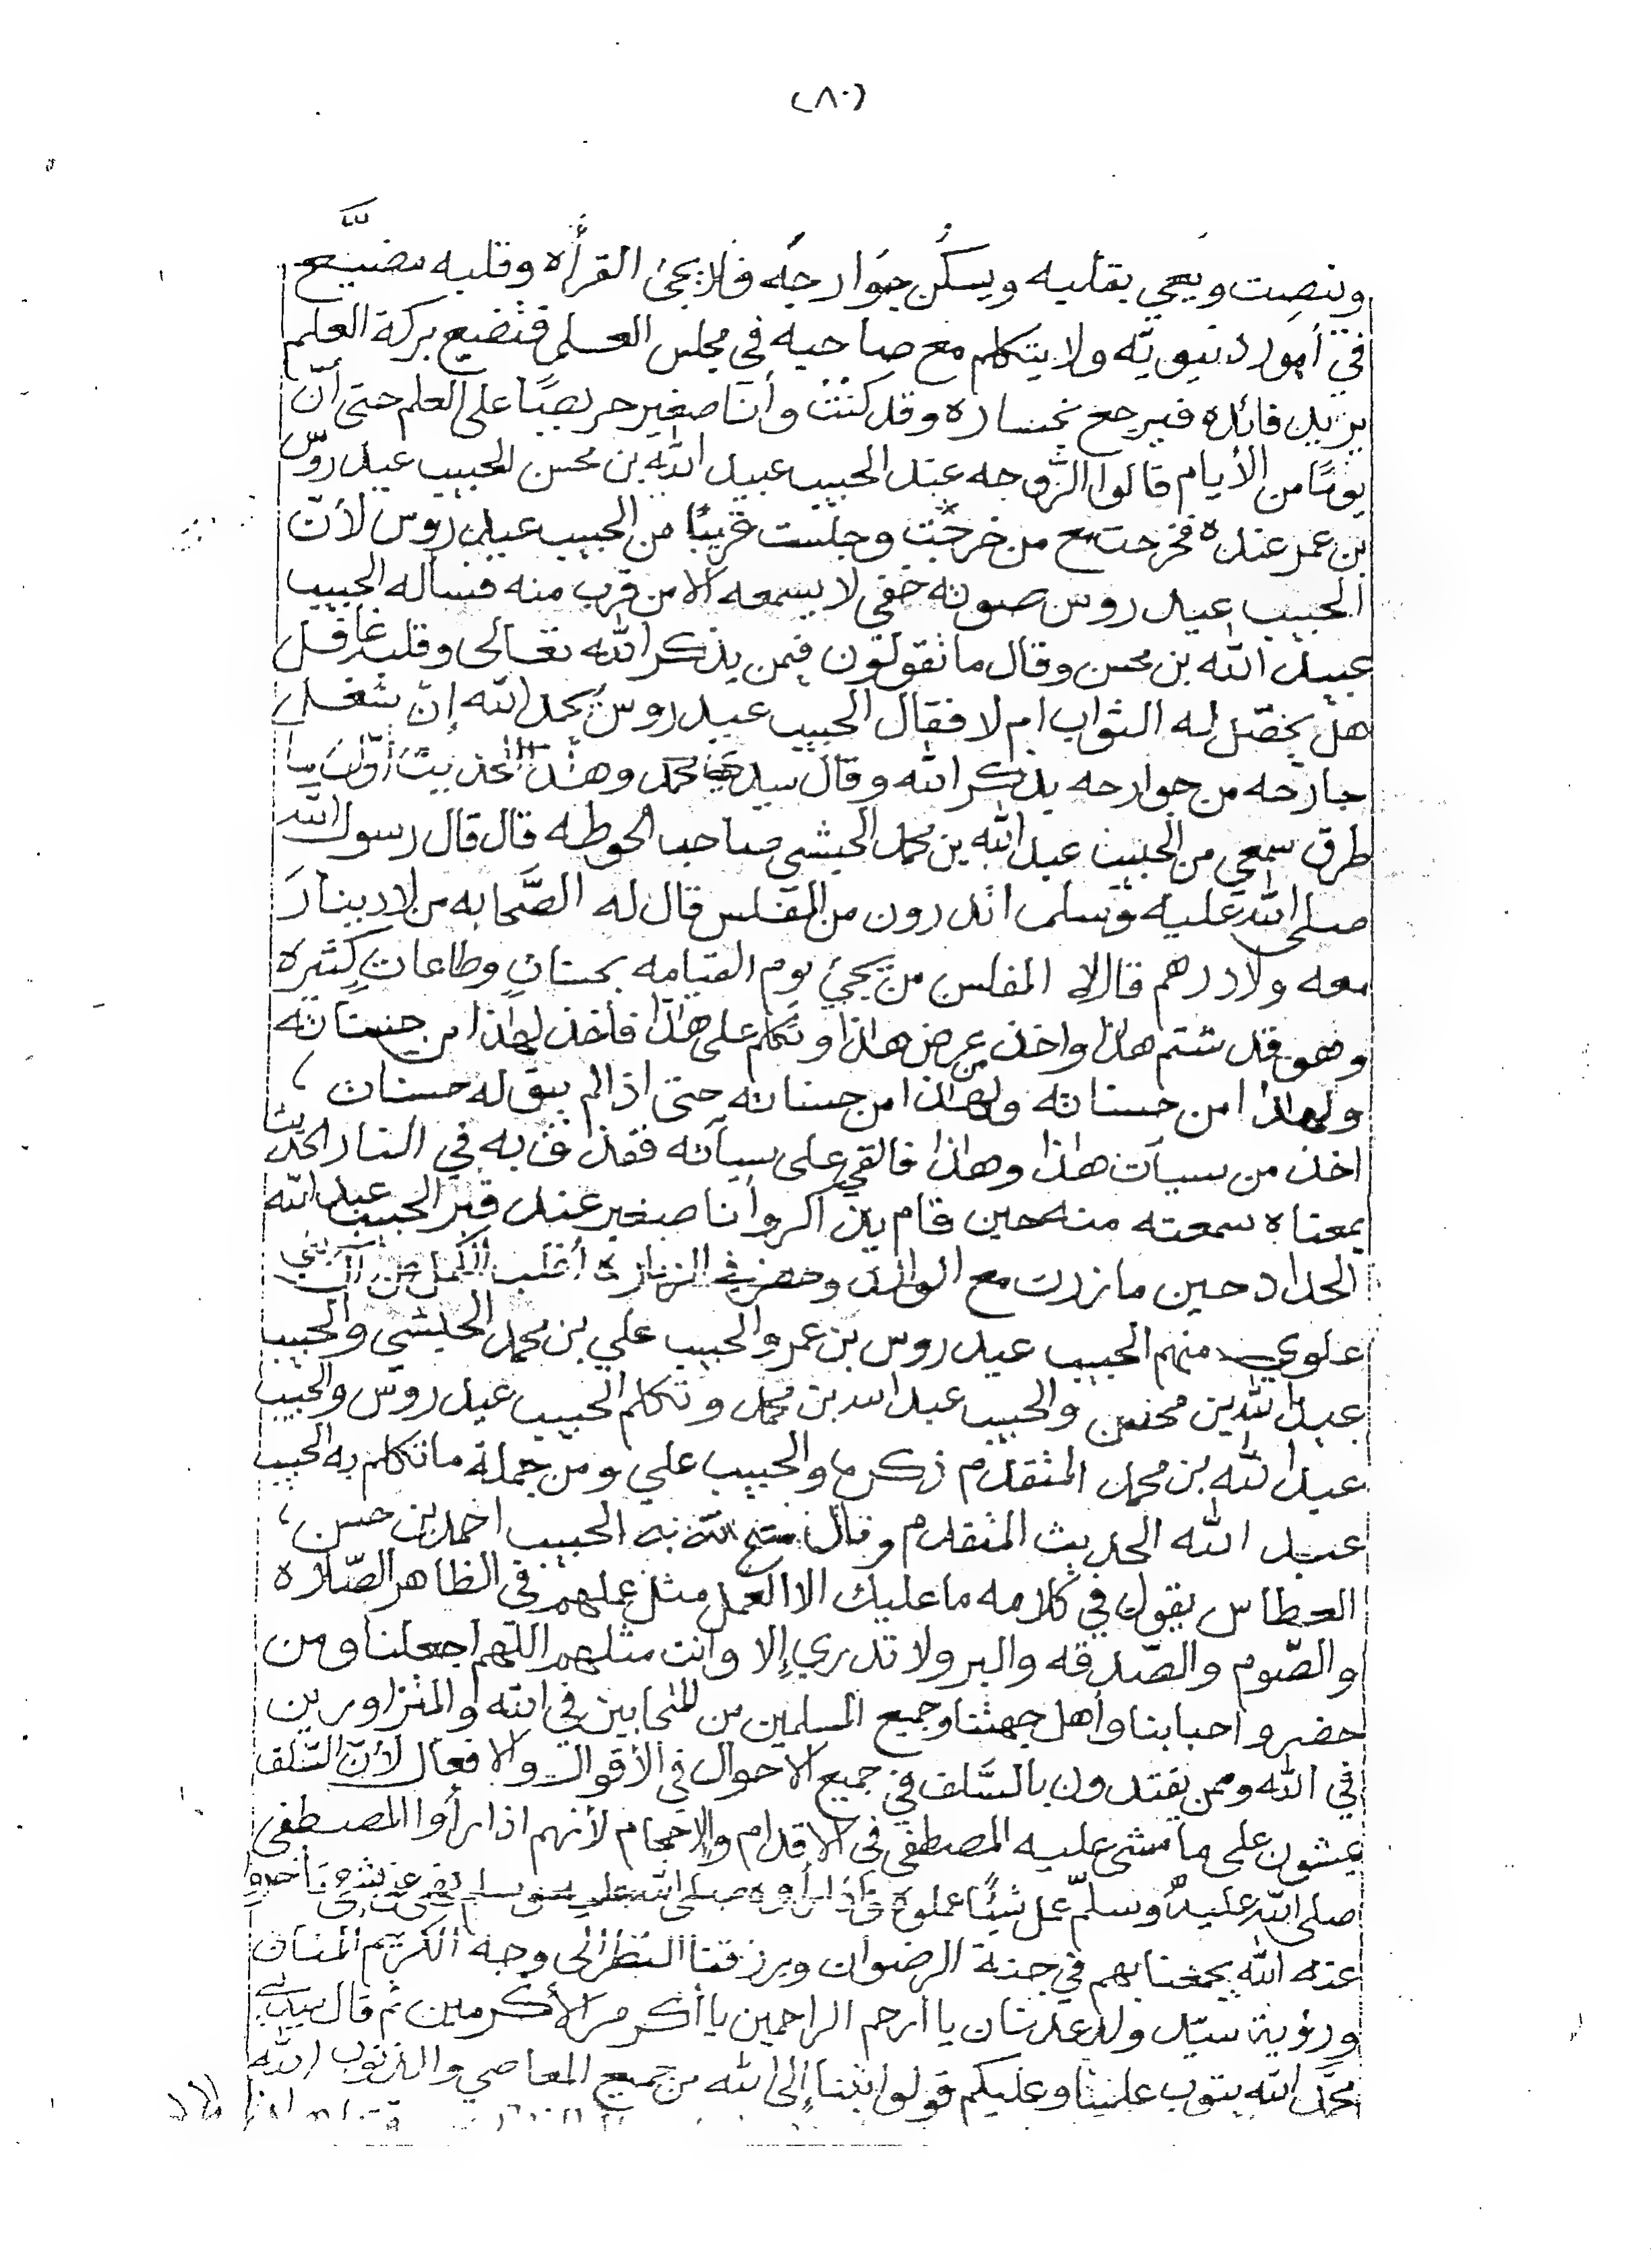 (٨٠)
وينصت ويعي بقلبه ويسكّن جوارحه فلا يجئ القرأه وقلبه مضيّع
في أمور دنيويّه ولا يتكلم مع صاحبه في مجلس العلم فتضيع بركة العلم
يريد فائده فيرجع بخساره وقد كنت وأنا صغير حريصًا على العلم حتى أنّ
يومًا من الأيام قالوا الزوجه عند الحبيب عبد الله بن محسن الحبيب عيدروس
بن عمر عنده فخرجت مع من خرجت وجلست قريبًا من الحبيب عيدروس لأنّ
الحبيب عيدروس صوته خفي لا يسمعه الا من قرب منه فسأله الحبيب
عبد الله بن محسن وقال ما تقولون فيمن يذكر الله تعالى وقلبه غافل
هل يحصّل له الثواب ام لا فقال الحبيب عيدروس يحمد الله إنّ شغل
جارحه من جوارحه بذكر الله وقال سيدي محمد وهذا الحديث أوّل ما
طرق سمعي من الحبيب عبد الله بن محمد الحبشي صاحب الحوطه قال قال رسول الله
صلى الله عليه وسلم اتدرون من المفلس قال له الصّحابه من لا دينار
معه ولا درهم قال لا المفلس من يجئ يوم القيامه بحسنات وطاعات كثيره
وهو قد شتم هاذا واخذ عرض هاذا وتكلم على هاذا فأخذ لهاذا من حسناته
ولهاذا من حسناته ولهاذا من حسناته حتى اذا لم يبق له حسنات ،
اخذ من سيآت هاذا وهاذا فالقي على سيآته فقذف به في النار الحديث
بمعناه سمعته منه حين قام يذاكر وأنا صغير عند قبر الحبيب عبد الله
الحداد حين ما زرت مع الوالد وحضر في الزياره أغلب الكمل من آل بني
علوي منهم الحبيب عيدروس بن عمر والحبيب علي بن محمد الحبشي والحبيب
عبد الله بن محسن والحبيب عبد الله بن محمد وتكلم الحبيب عيدروس والحبيب
عبد الله بن محمد المتقدم ذكرها والحبيب علي ومن جملة ما تكلم به الحبيب
عبد الله الحديث المتقدم وقال متع الله به الحبيب احمد بن حسن ،
العطاس يقول في كلامه ما عليك الا العمل مثل عملهم في الظاهر الصّلاه
والصّوم والصّدقه والبر ولا تدري إلا وأنت مثلهم اللّهم اجعلنا ومن
حضر واحبابنا وأهل جهتنا وجميع المسلمين من المتحابين في الله والمتزاورين
في الله وممن يقتدون بالسّلف في جميع الاحوال في الأقوال والافعال لأنّ السّلف
يمشون على ما مشى عليه المصطفى في الاقدام والإحجام لأنهم اذا رأوا المصطفى
صلى الله عليه وسلّم عمل شيئًا عملوه واذا رأوه صلى الله عليه وسلم تأخر عن شيء تأخروا
عنه الله يجمعنا بهم في جنة الرضوان ويرزقنا النظر الى وجه الكريم المنان
ورؤية سيّد ولد عدنان يا أرحم الراحمين يا أكرم الأكرمين ثم قال سيدي
محمّد الله يتوب علينا وعليكم قولوا تبنا إلى الله من جميع المعاصي والذنوب الله